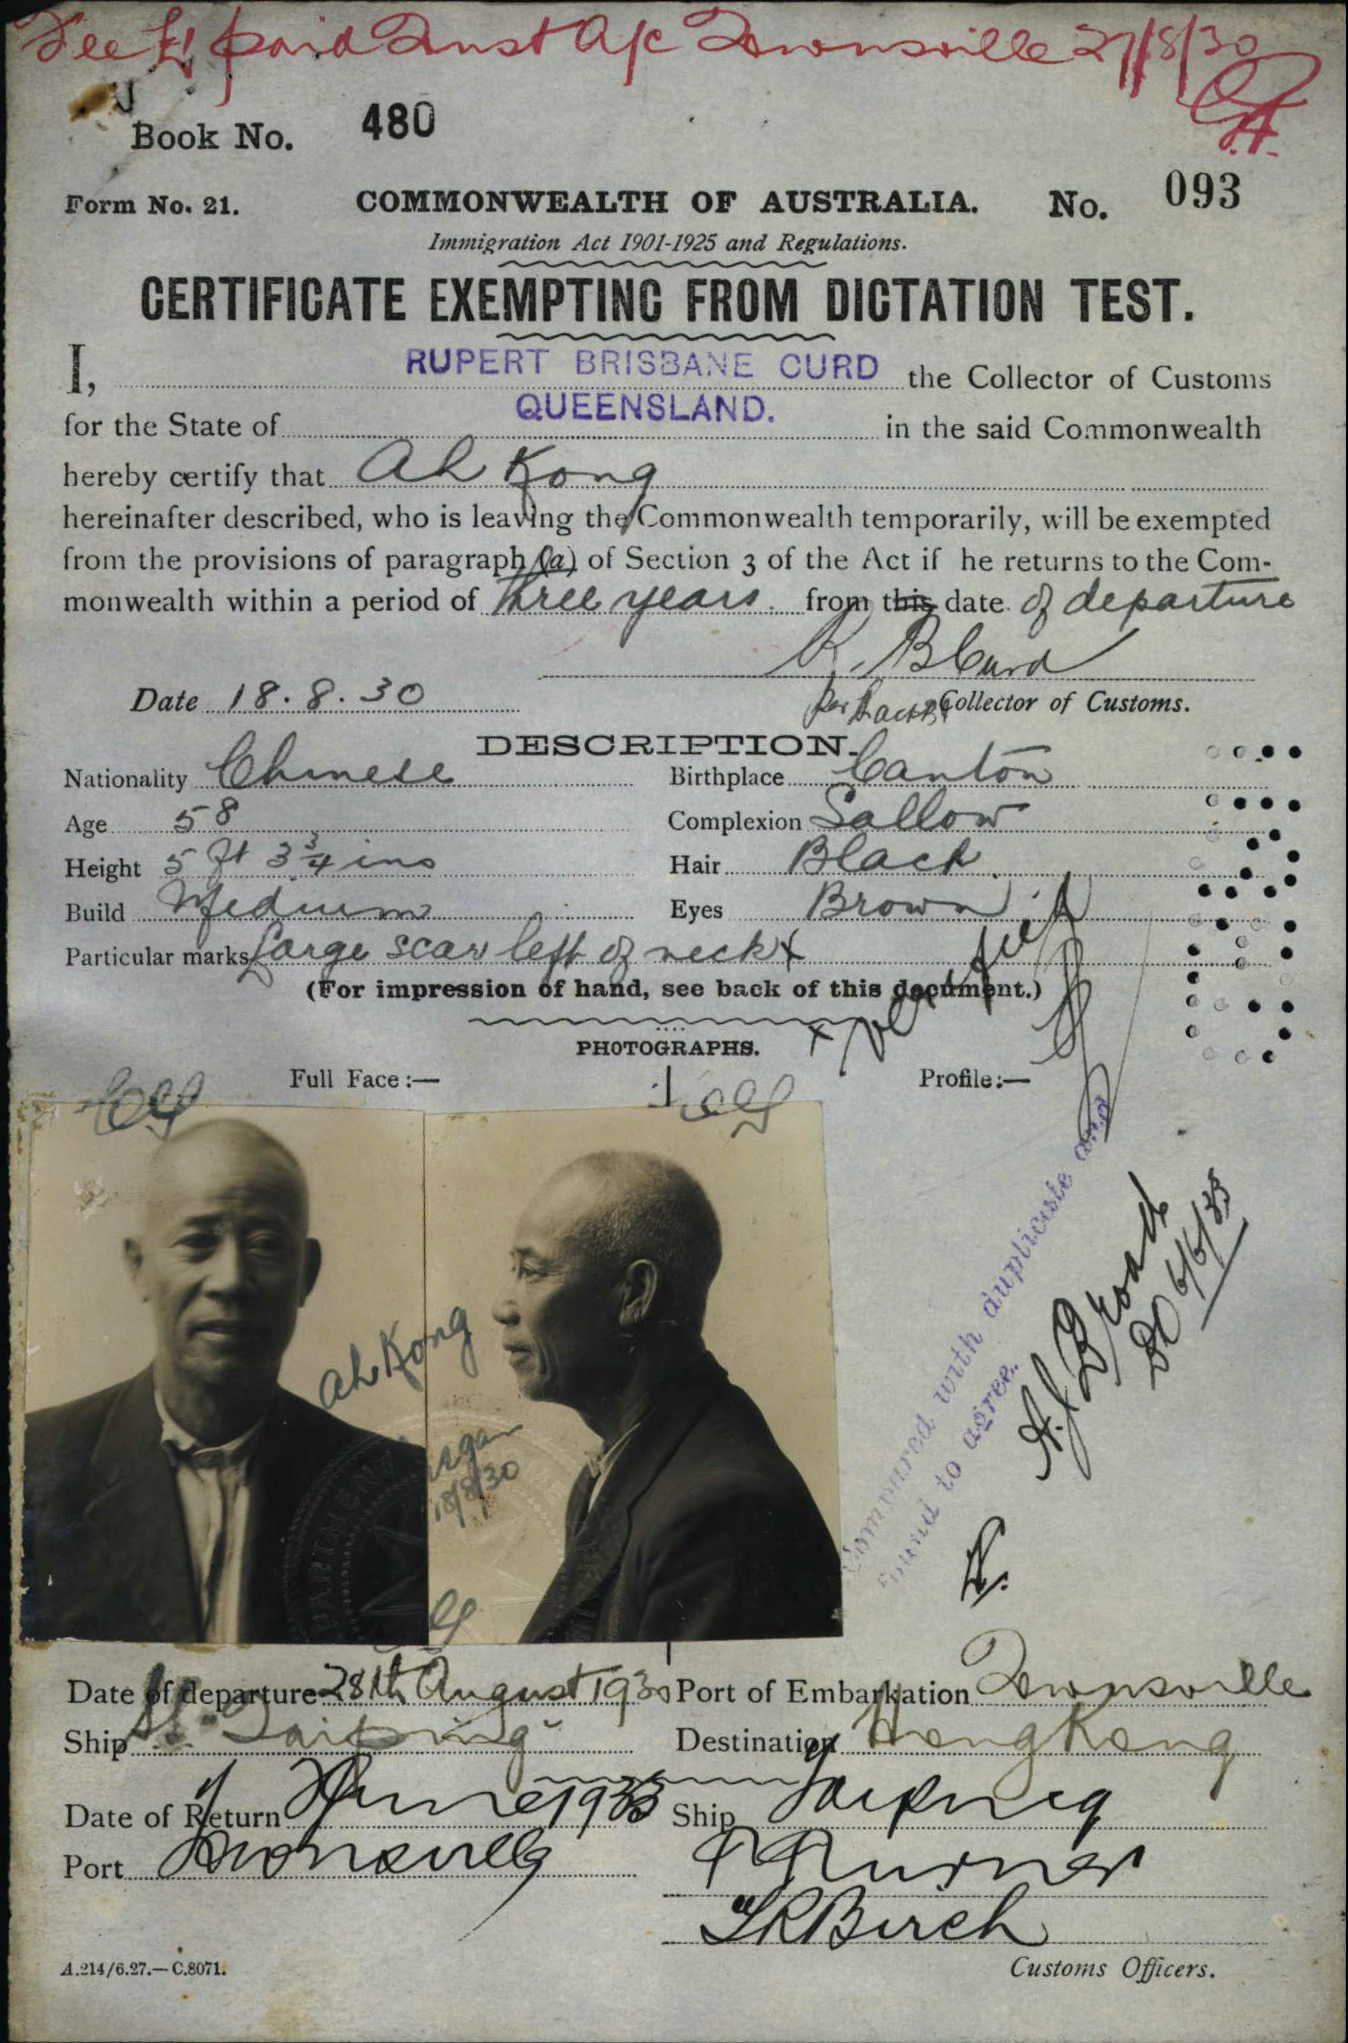 Fee £1 paid Trust A/c Townsville 27/8/30
Book No. 480
Form No. 21. COMMONWEALTH OF AUSTRALIA. No. 093
Immigration Act 1901-1925 and Regulations.
CERTIFICATE EXEMPTING FROM DICTATION TEST.
I, RUPERT BRISBANE CURD the Collector of Customs
for the State of QUEENSLAND. in the said Commonwealth
hereby certify that Ah Kong
hereinafter described, who is leaving the Commonwealth temporarily, will be exempted
from the provisions of paragraph (a) of Section 3 of the Act if he returns to the Com-
monwealth within a period of three years. from this date of departure
R. B Curd
Date 18.8.30 Collector of Customs.
DESCRIPTION.
Nationality Chinese Birthplace Canton
Age 58 Complexion Sallow
Height 5 ft 3 3/4 ins Hair Black.
Build Medium Eyes Brown
Particular marks Large scar left of neck x
(For impression of hand, see back of this document.)
x verified
PHOTOGRAPHS.
Full Face:— Profile:—
Ah Kong
18/8/30
Compared with duplicate and
found to agree.
A.J. Broad
DO 6/6/33
Date of departure 28th August 1930 Port of Embarkation Townsville
Ship "Taiping" Destination Hong Kong
Date of Return June 1933 Ship Taiping
Port Townsville
Birch
A.214/6.27.—C.8071. Customs Officers.